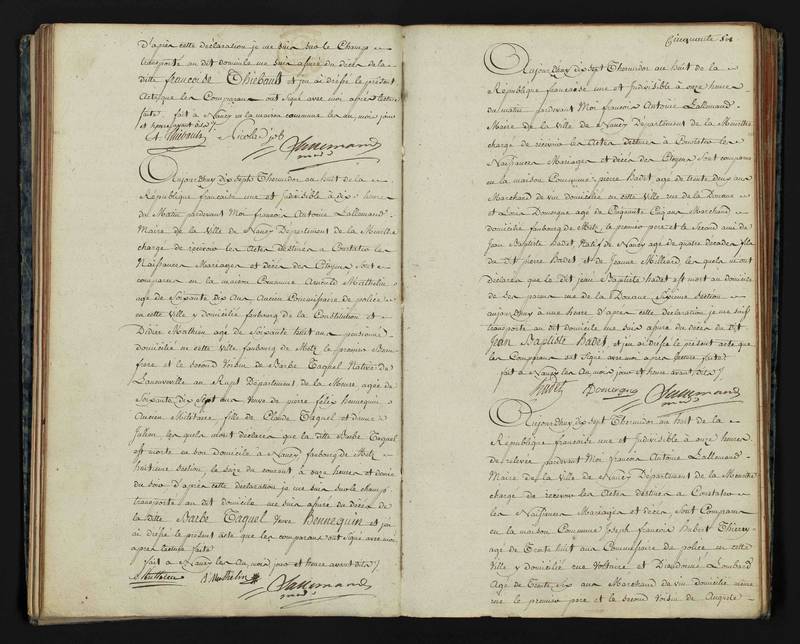 D'après cette déclaration je me suis sur le Champ
transporté au dit domicile me suis assuré du décès de la
ditte francoise Thiébault et j'en ai dressé le présent
acte que les Comparans ont signé avec moi après lecture
faite, fait à Nancy en la maison commune les an, mois jour
et heure avant dits
Thiébault Nicolas Job Lallemand
maire
Aujourdhuy dix sept Thermidor au huit de la
République francaise une et Indivisible à dix heure
du Matin pardevant Moi francois Antoine Lallemand
Maire de la Ville de Nancy Département de la Meurthe
chargé de recevoir les Actes destinés a Constater les
Naissances Mariages et décès des Citoyens Sont
comparus en la maison Commune Arnould Mathelin
agé de Soixante dix Ans Ancien Commissaire de police
en cette Ville y domicilié faubourg de la Constitution et
Didier Mathelin agé de Soixante huit ans pensionné
domicilié en cette ville faubourg de Metz le premier Beau
frere et le second Voisin de Barbe Taquel Native de
Département de la Meuse, agée de
Soixante dix Sept ans Veuve de pierre felix hennequin
Ancien Militaire fille de Claude Taquel et d'anne
Jullien les quels m'ont déclaré que la ditte Barbe Taquel
est morte en son domicile à Nancy faubourg de Metz
huitieme Section, le seize du courant à onze heures et demie
du soir D'après cette déclaration je me suis sur le champ
transporté au dit domicile me suis assuré du décès de
la ditte Barbe Taquel Veuve Hennequin et j'en
ai dressé le présent acte que les comparans ont signé avec moi
après lecture faite
fait à Nancy les an, mois jour et heure avant dits
Mathelin D Mathelin Lallemand
maire
Cinquante six
Aujourdhuy dix sept Thermidor au huit de la
République francaise une et Indivisible à onze heures
du matin pardevant Moi francois Antoine Lallemand
Maire de la Ville de Nancy Département de la Meurthe
chargé de recevoir les Actes destinés a Constater les
Naissances Mariages et décès des Citoyens Sont comparus
en la maison Commune pierre Hadet agé de trente deux ans
Marchand de vin domicilié en cette ville rue de la Douane
et Louis Domergue agé de Cinquante Cinq ans Marchand
domicilié faubourg de Metz, le premier pere et le Second ami de
Jean Baptiste Hadet Natif de Nancy agé de quatre decades fils
de dit pierre Hadet et de Jeanne Milliard les quels m'ont
déclaré que le dit jean Baptiste hadet est mort au domicile
de ses parens rue de la Douane Sixieme Section
aujourdhuy à une heure d'après cette déclaration je me suis
transporté au dit domicile me suis assuré du décès du dit
Jean Baptiste hadet, et j'en ai dressé le présent acte que
les Comparans ont signé avec moi après lecture faite
fait à Nancy les An, mois jour et heure avant dits
hadet Domergue Lallemand
maire
Aujourdhuy dix sept Thermidor au huit de la
République francaise une et Indivisible à onze heures
de relevée pardevant Moi francois Antoine Lallemand
Maire de la Ville de Nancy Département de la Meurthe
chargé de recevoir les Actes destinés a Constater
les Naissances Mariages et décès, Sont Comparus
en la maison Commune Joseph francois Hubert Thierry
agé de Trente huit ans Commissaire de police en cette
Ville y domicilié rue Voltaire et Dieudonné Lombard
Agé de Trente six ans Marchand de vin domicilié même
rue le premier pere et le second Voisin de Auguste